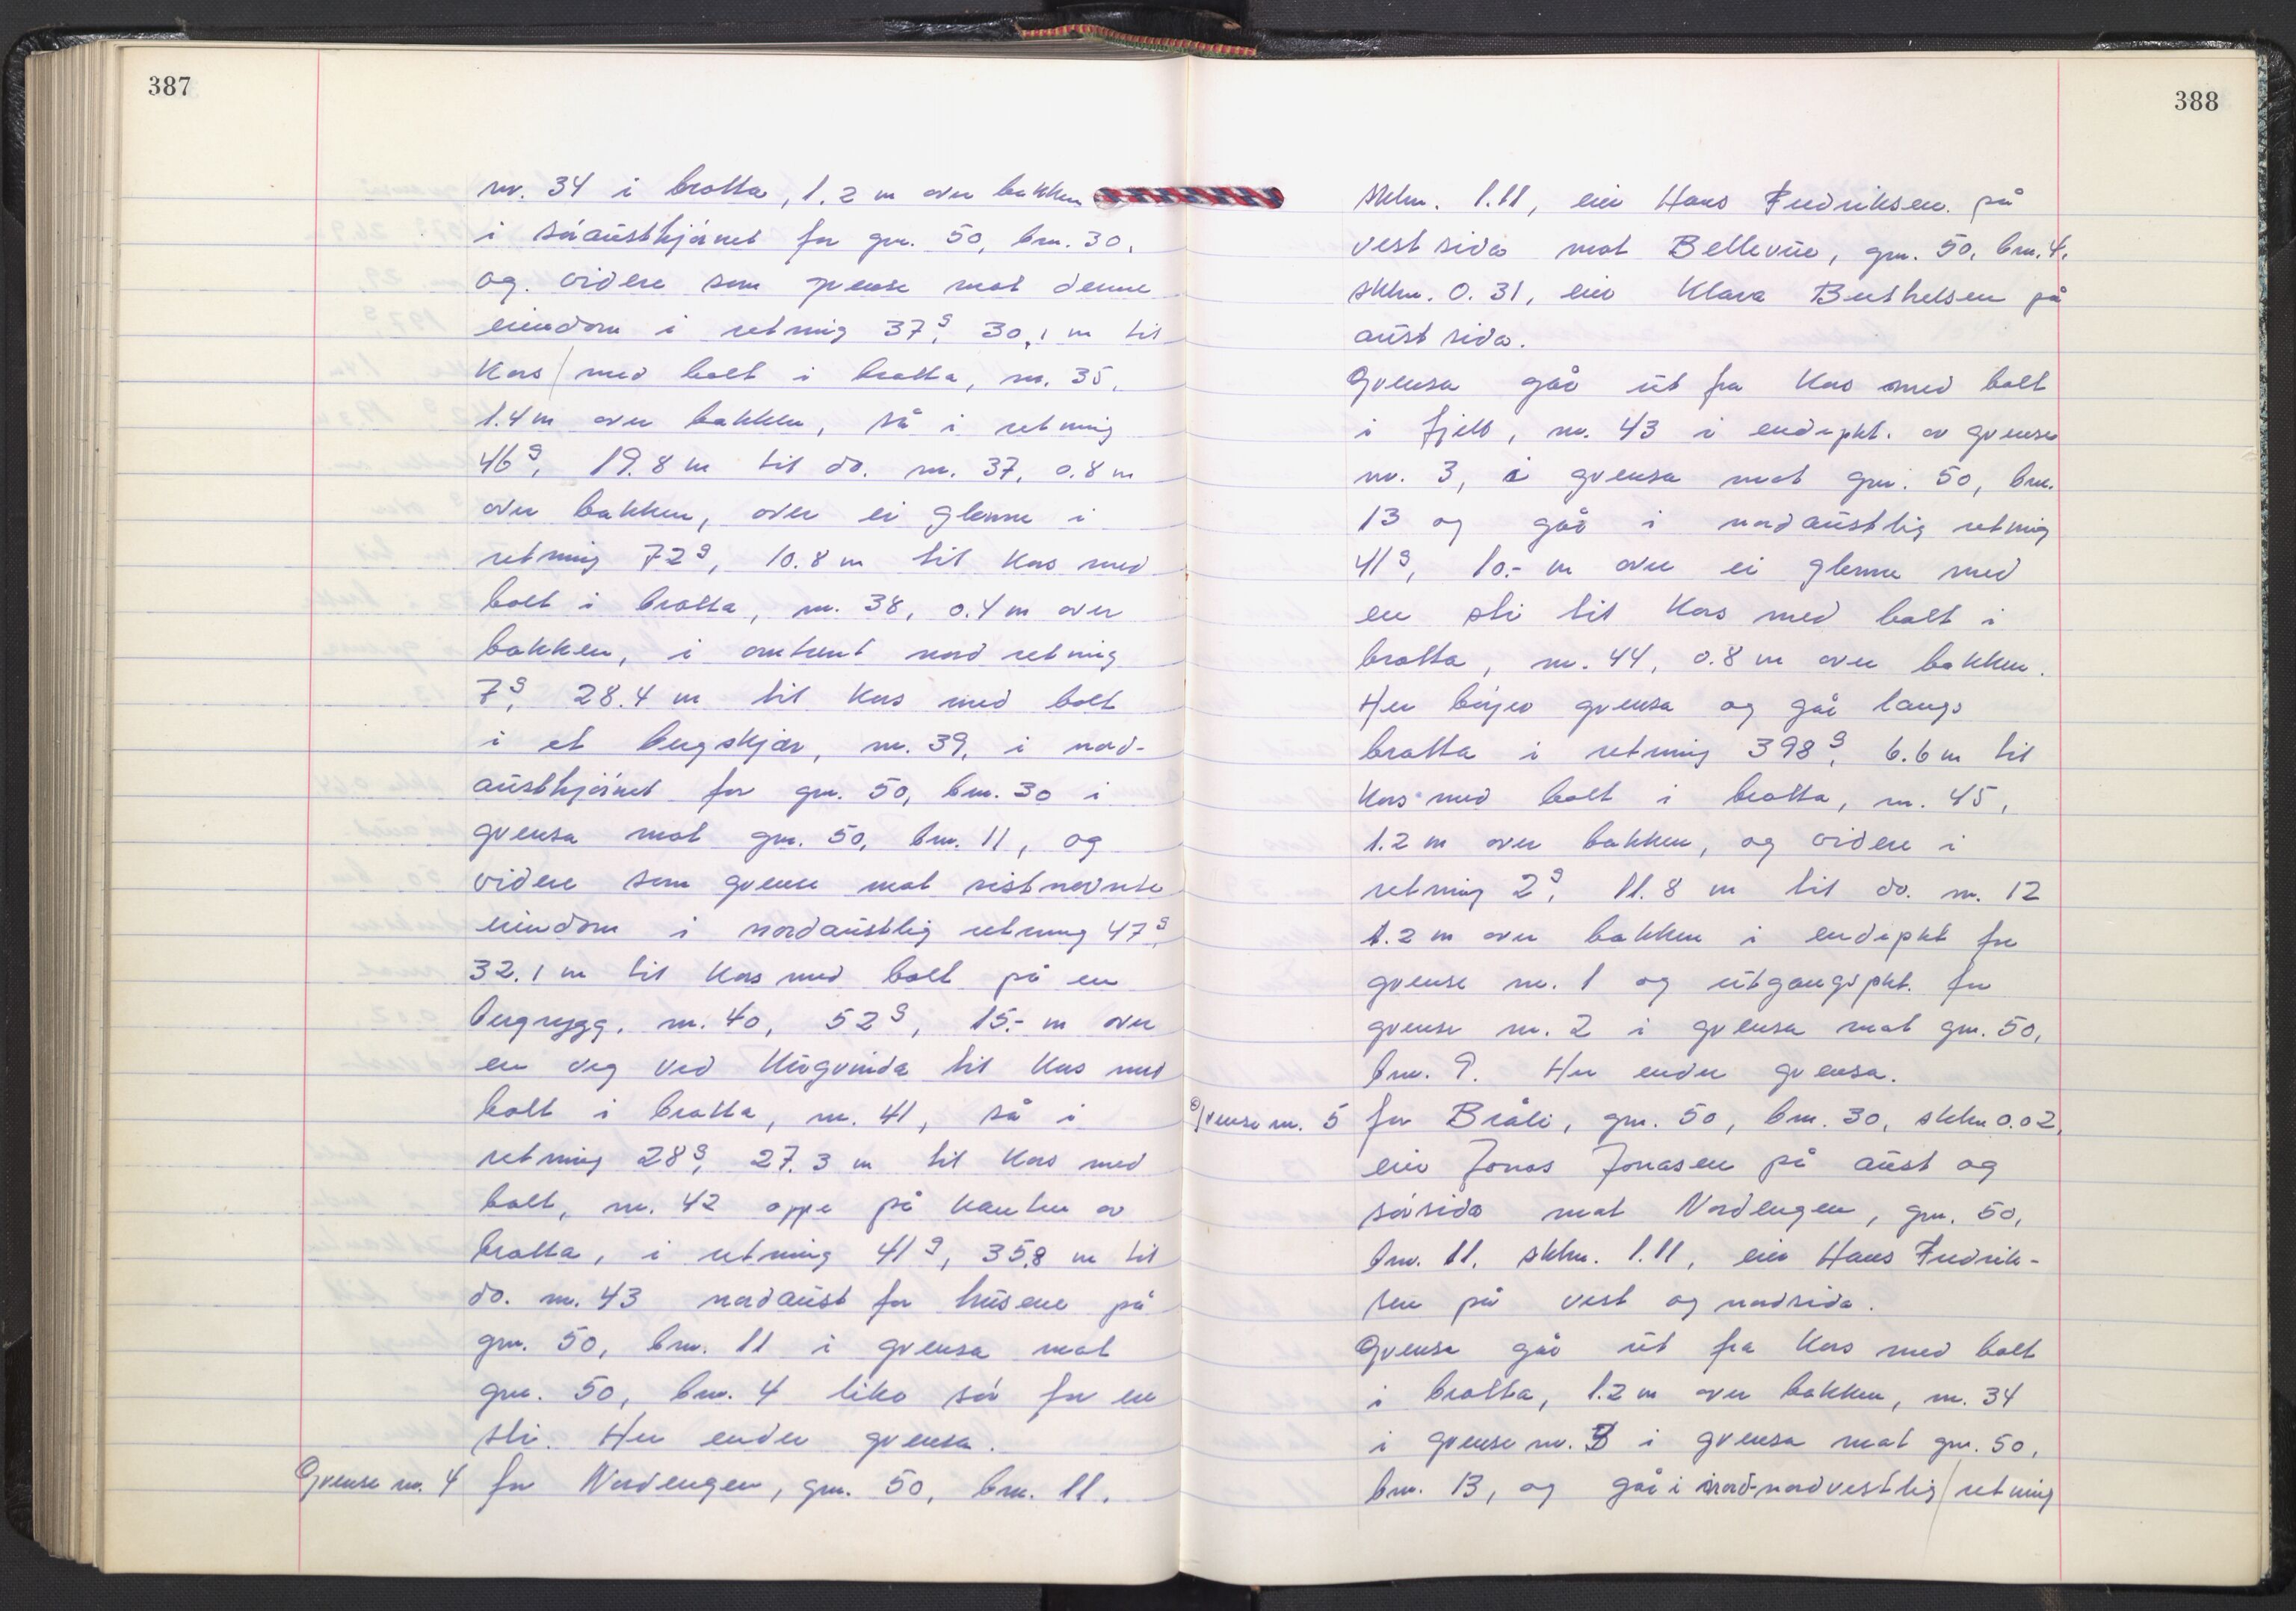 387
nr. 34 i bratta, 1.2 m over bakken
i sørausthjørnet for gnr. 50, bnr. 30,
og videre som grense mot denne
eiendom i retning 37g, 30.1 m til
kors med bolt i bratta, nr. 35,
1.4 m over bakken, så i retning
46g, 19.8 m til do. nr. 37, 0.8 m
over bakken, over ei glenne i
retning 72g, 10.8 m til kors med
bolt i bratta, nr. 38, 0.4 m over
bakken, i omtrent nord retning
7g, 28.4 m til kors med bolt
i et bergskjær, nr. 39, i nord-
austhjørnet for gnr. 50, bnr. 30 i
grensa mot gnr. 50, bnr. 11, og
videre som grense mot sistnevnte
eiendom i nordaustlig retning 47g,
32.1 m til kors med bolt på en
bergrygg, nr. 40, 52g, 15.- m over
en veg ved til kors med
bolt i bratta, nr. 41, så i
retning 28g, 27.3 m til kors med
bolt, nr. 42 oppe på kanten av
bratta, i retning 41g, 35.8 m til
do. nr. 43 nordaust for husene på
gnr. 50, bnr. 11 i grensa mot
gnr. 50, bnr. 4 like sør for en
sti. Her ender grensa.
Grense nr. 4 for Nordengen, gnr. 50, bnr. 11,
388
skln. 1.11, eier Hans Fredriksen på
vestsida mot Bellevue, gnr. 50, bnr. 4,
skln. 0.31, eier Klara Berthelsen på
austsida.
Grensa går ut fra kors med bolt
i fjell, nr. 43 i endepkt. av grense
nr. 3, i grensa mot gnr. 50, bnr.
13 og går i nordaustlig retning
41g, 10.- m over ei glenne med
en sti til kors med bolt i
bratta, nr. 44, 0.8 m over bakken.
Her bøyer grensa og går langs
bratta i retning 398g, 6.6 m til
kors med bolt i bratta, nr. 45,
1.2 m over bakken, og videre i
retning 2g, 11.8 m til do. nr. 12
1.2 m over bakken i endepkt for
grense nr. 1 og utgangspkt. for
grense nr. 2 i grensa mot gnr. 50,
bnr. 9. Her ender grensa.
Grense nr. 5 for Bråli, gnr. 50, bnr. 30, skln 0.02,
eier Jonas Jonasen på aust og
sørsida mot Nordengen, gnr. 50,
bnr. 11, skln. 1.11, eier Hans Fredrik-
sen på vest og nordsida.
Grensa går ut fra kors med bolt
i bratta, 1.2 m over bakken, nr. 34
i grense nr. 3 i grensa mot gnr. 50,
bnr. 13, og går i nord-nordvestlig retning